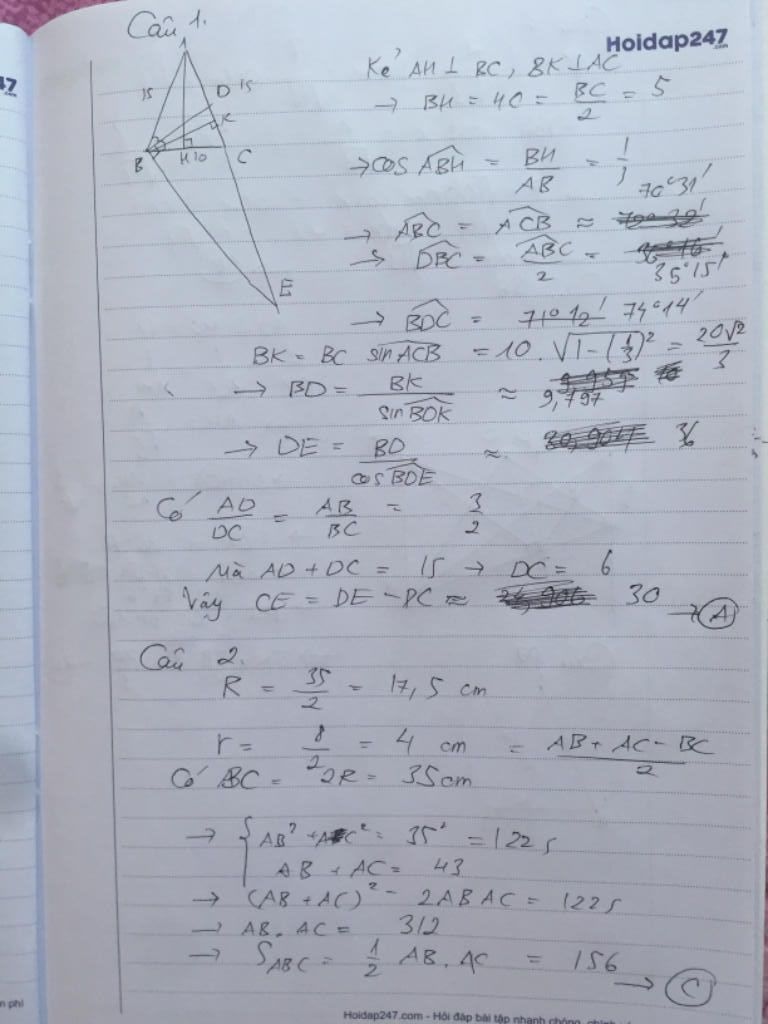 Câu 1.
Hoidap247
.com
47
.com
A
15
D
15
K
B
H
10
C
E
Kẻ AH ⊥ BC, BK ⊥ AC
→ BH = HC = BC/2 = 5
→ cos ABH = BH/AB = 1/3
70°31'
→ ABC = ACB ≈
→ DBC = ABC/2 =
35°15'
→ BDC = 71°12' 74°14'
BK = BC sin ACB = 10 . √1 - (1/3)² = 20√2/3
→ BD = BK/sin BDK ≈ 9,797
→ DE = BD/cos BDE ≈ 36
Có AD/DC = AB/BC = 3/2
Mà AD + DC = 15 → DC = 6
Vậy CE = DE - DC ≈ 30 → A
Câu 2.
R = 35/2 = 17,5 cm
r = 8/2 = 4 cm = AB + AC - BC/2
Có BC = 2R = 35cm
→ { AB² + AC² = 35² = 1225
AB + AC = 43
→ (AB + AC)² - 2AB AC = 1225
→ AB. AC = 312
→ S ABC = 1/2 AB. AC = 156 → C
n phí
Hoidap247.com - Hỏi đáp bài tập nhanh chóng, chính